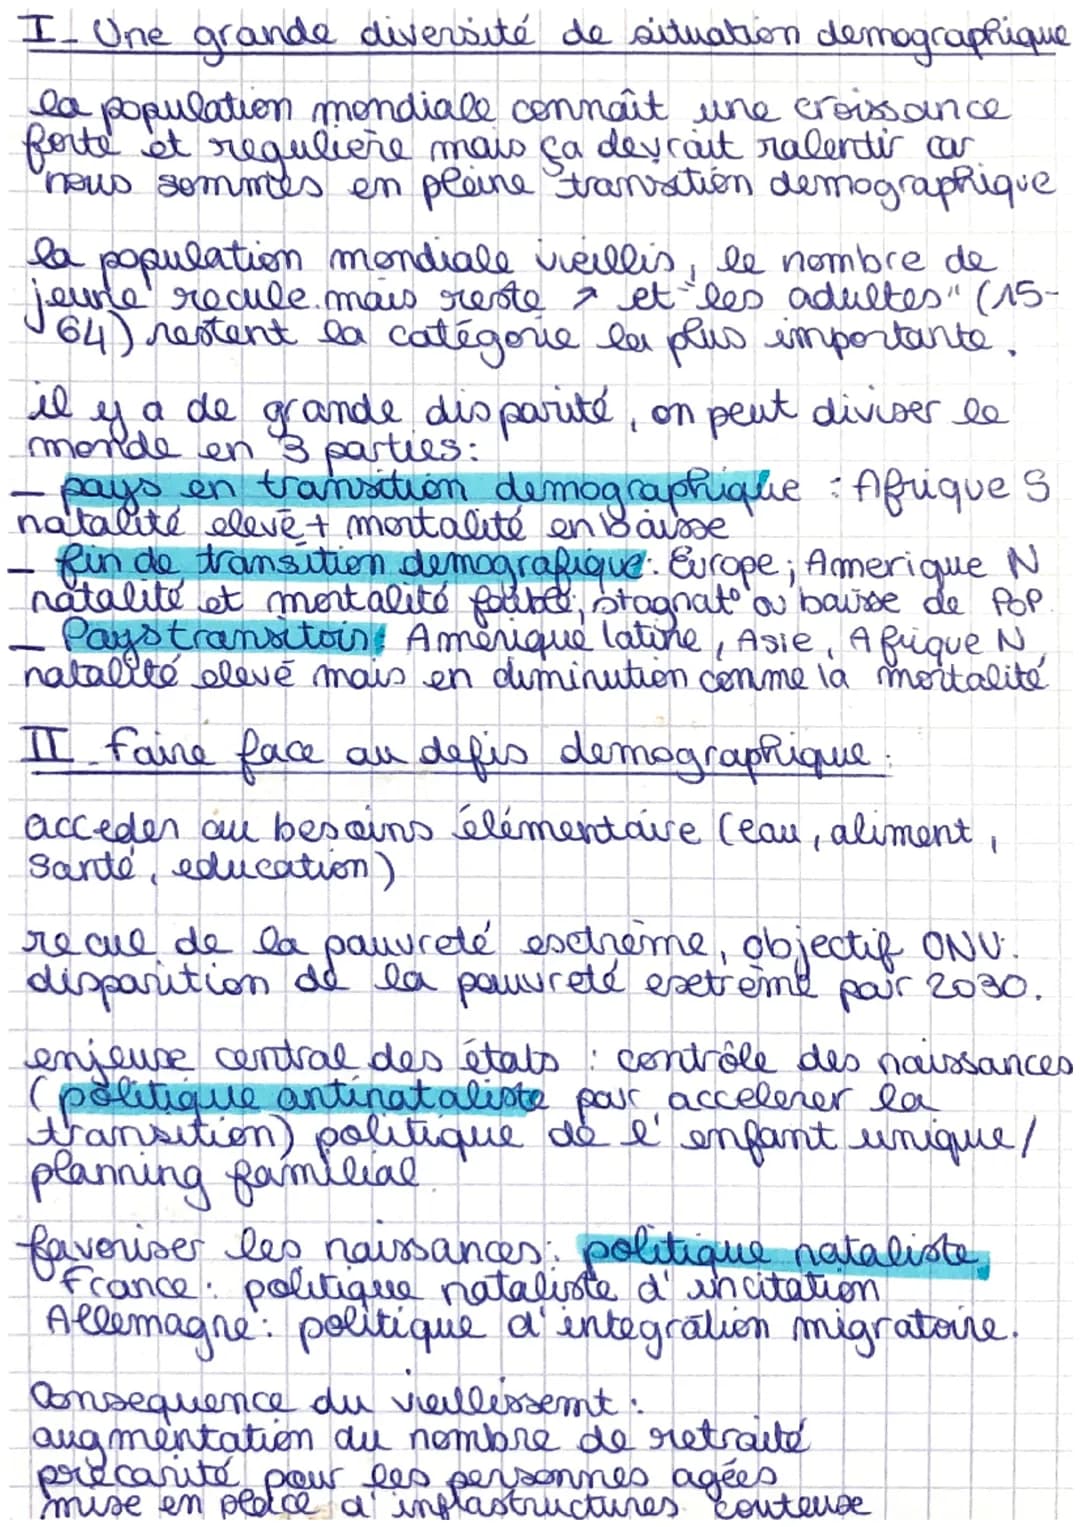 I - Une grande diversité de situation demographique
la population mondiale connaît une croissance
forte et reguliere mais ça devrait ralentir car
nous sommes en pleine transition demographique
la population mondiale vieillis, le nombre de
jeune recule mais reste ↗ et "les adultes" (15-
64) restent la catégorie la plus importante.
il y a de grande disparité, on peut diviser le
monde en 3 parties:
- pays en transition demographique : Afrique S
natalité elevé + mortalité en baisse
- fin de transition demografique: Europe; Amerique N
natalité et mortalité faible; stagnat° ou baisse de POP.
- Pays transitoir: Amérique latine, Asie, Afrique N
natalité elevé mais en diminution comme la mortalité
II - faire face au defis demographique:
acceder au besoins élémentaire (eau, aliment,
santé, education)
recul de la pauvreté extrème, objectif ONU:
disparition de la pauvreté extrème par 2030.
enjeux central des états : contrôle des naissances
(politique antinataliste par accelerer la
transition) politique de l'enfant unique/
planning familial
favoriser les naissances: politique nataliste
France: politique nataliste d'incitation
Allemagne: politique d'integration migratoire.
Consequence du vieillissemt:
augmentation du nombre de retraité
précarité pour les personnes agées
mise en place d'inflastructures couteuse